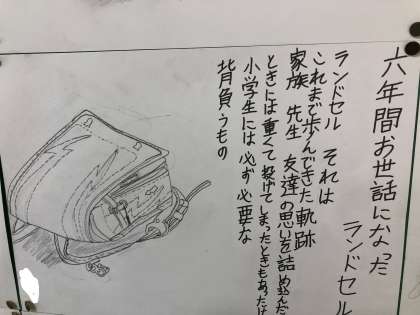 六年間お世話になった
ランドセル
ランドセル それは
これまで歩んできた軌跡
家族 先生 友達の思いを詰め込んだ
ときには重くて投げてしまったときもあったけ
小学生には必ず必要な
背負うもの